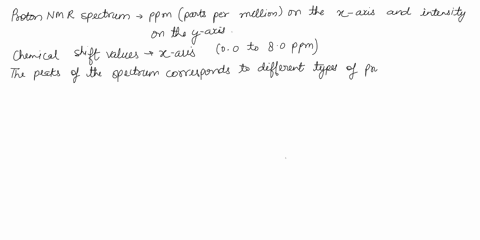 Proton NMR spectrum → ppm (parts per million) on the x-axis and intensity
on the y-axis.
Chemical shift values → x-axis (0.0 to 8.0 ppm)
The peaks of the spectrum corresponds to different types of pr